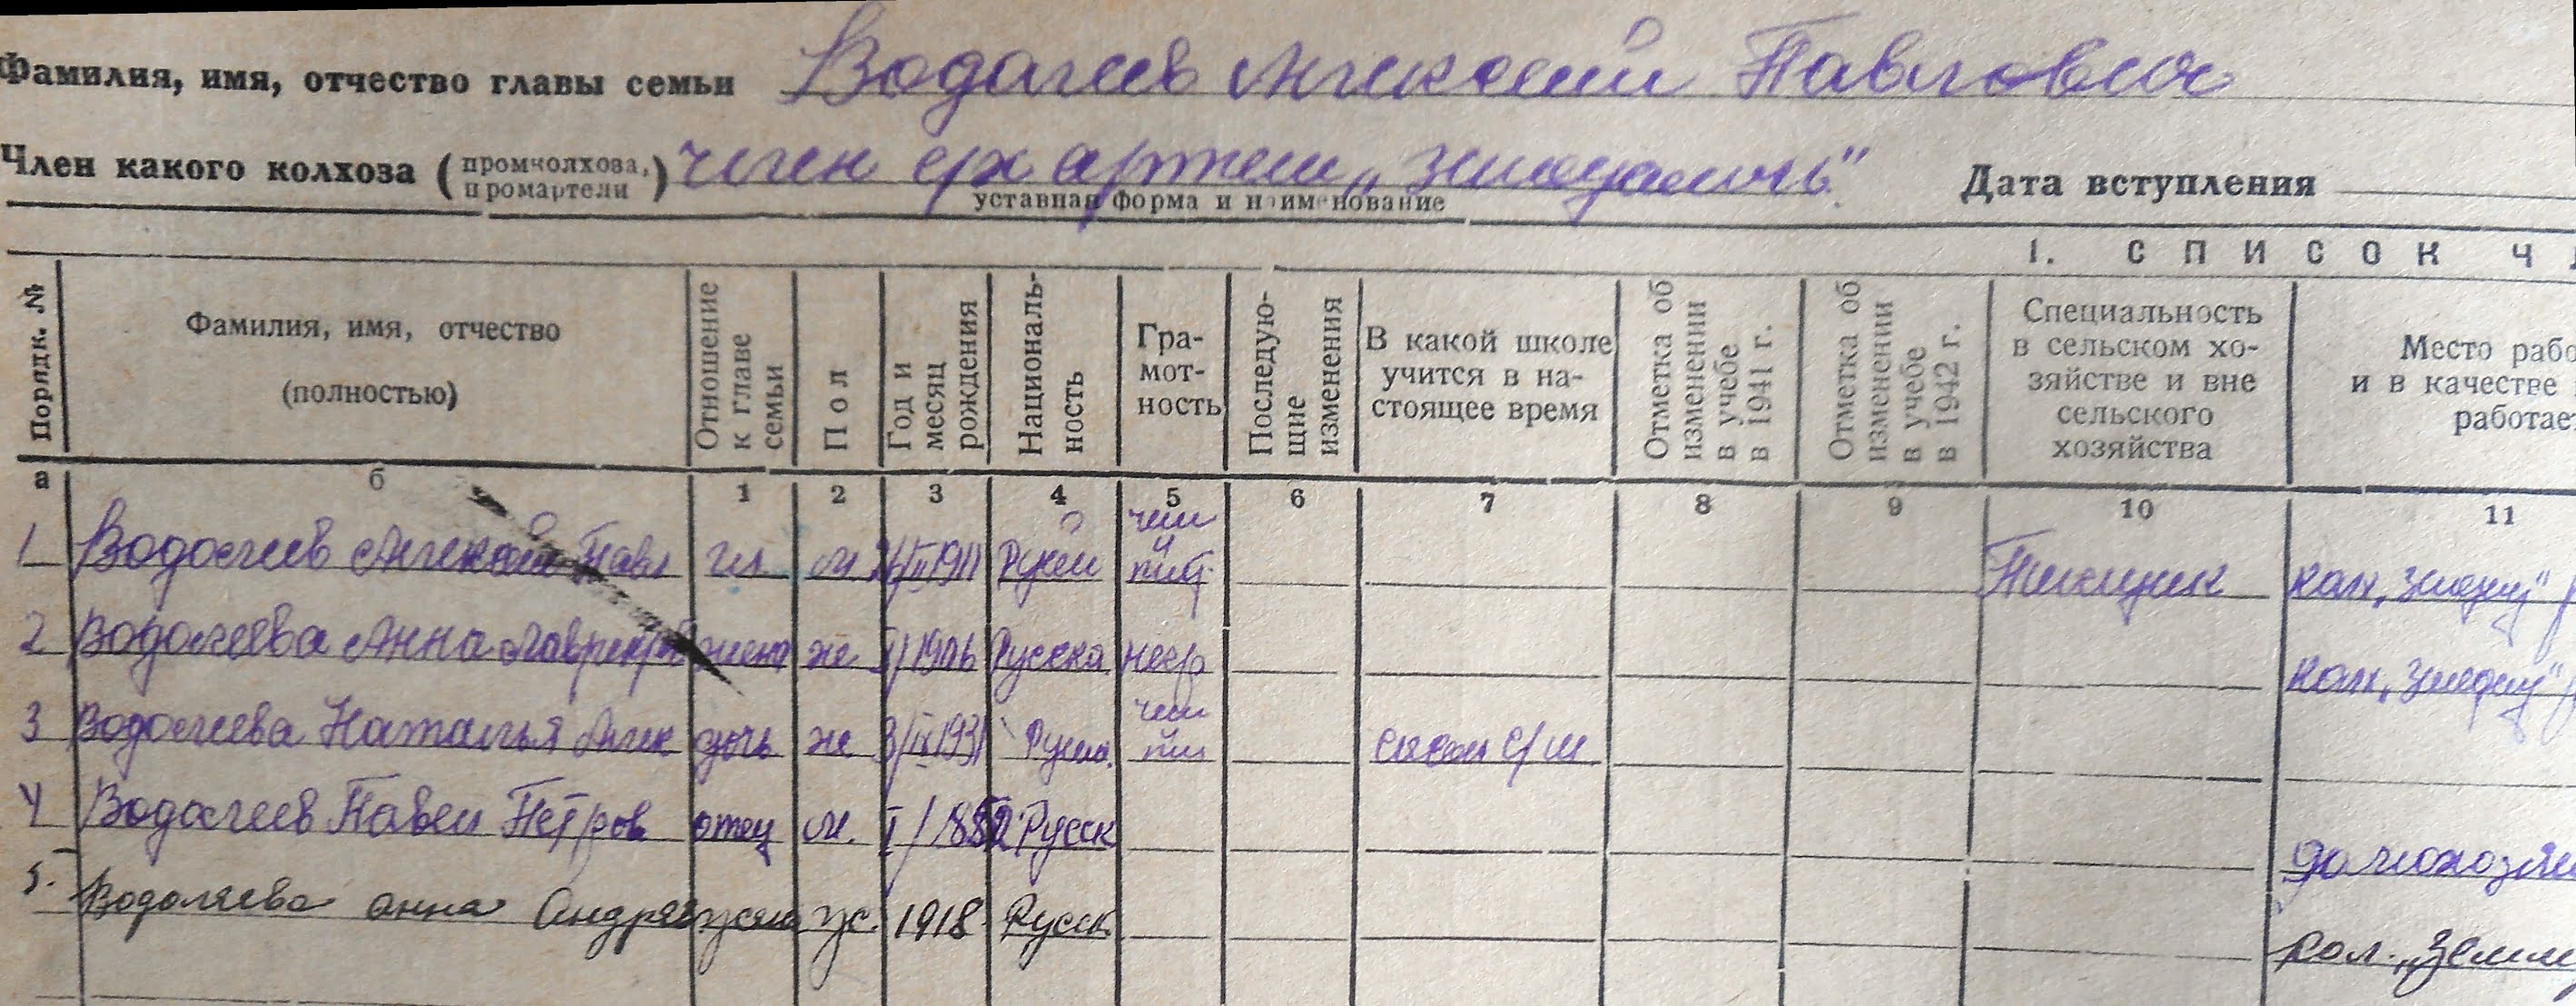 Фамилия, имя, отчество главы семьи Водолеев Алексей Павлович
Член какого колхоза (промколхоза, промартели) член с/х артели „
уставная форма и наименование
Дата вступления
I. СПИСОК Ч
Порядк. №
Фамилия, имя, отчество (полностью)
Отношение к главе семьи
Пол
Год и месяц рождения
Националь-ность
Гра-мот-ность
Последую-щие изменения
В какой школе учится в на-стоящее время
Отметка об изменении в учебе в 1941 г.
Отметка об изменении в учебе в 1942 г.
Специальность в сельском хо-зяйстве и вне сельского хозяйства
Место рабо и в качестве работае
а б 1 2 3 4 5 6 7 8 9 10 11
1 Водолеев Алексей Павл гл м 1911 Руский чит и пис кол „
2 Водолеева Анна жена же 1906 Русска негр кол „
3 Водолеева Наталья Алек дочь же 3/IX 1931 Руска. чит пис с/ш
4 Водолеев Павел Петров отец м. I/1882 Русск домохозяй
5. Водоляева анна Андрев жена ж. 1918 Русск кол. „Земл